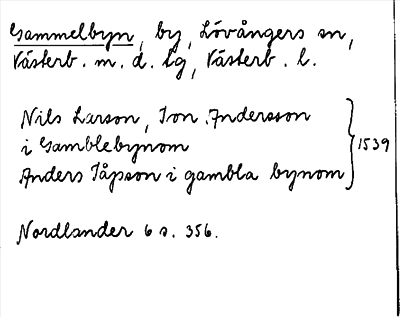 Gammelbyn, by, Lövångers sn,
Västerb. m. d. tg, Västerb. l.
Nils Larson, Jon Andersson
i Gamblebynom
Anders Jåpson i gambla bynom } 1539
Nordlander 6 s. 356.